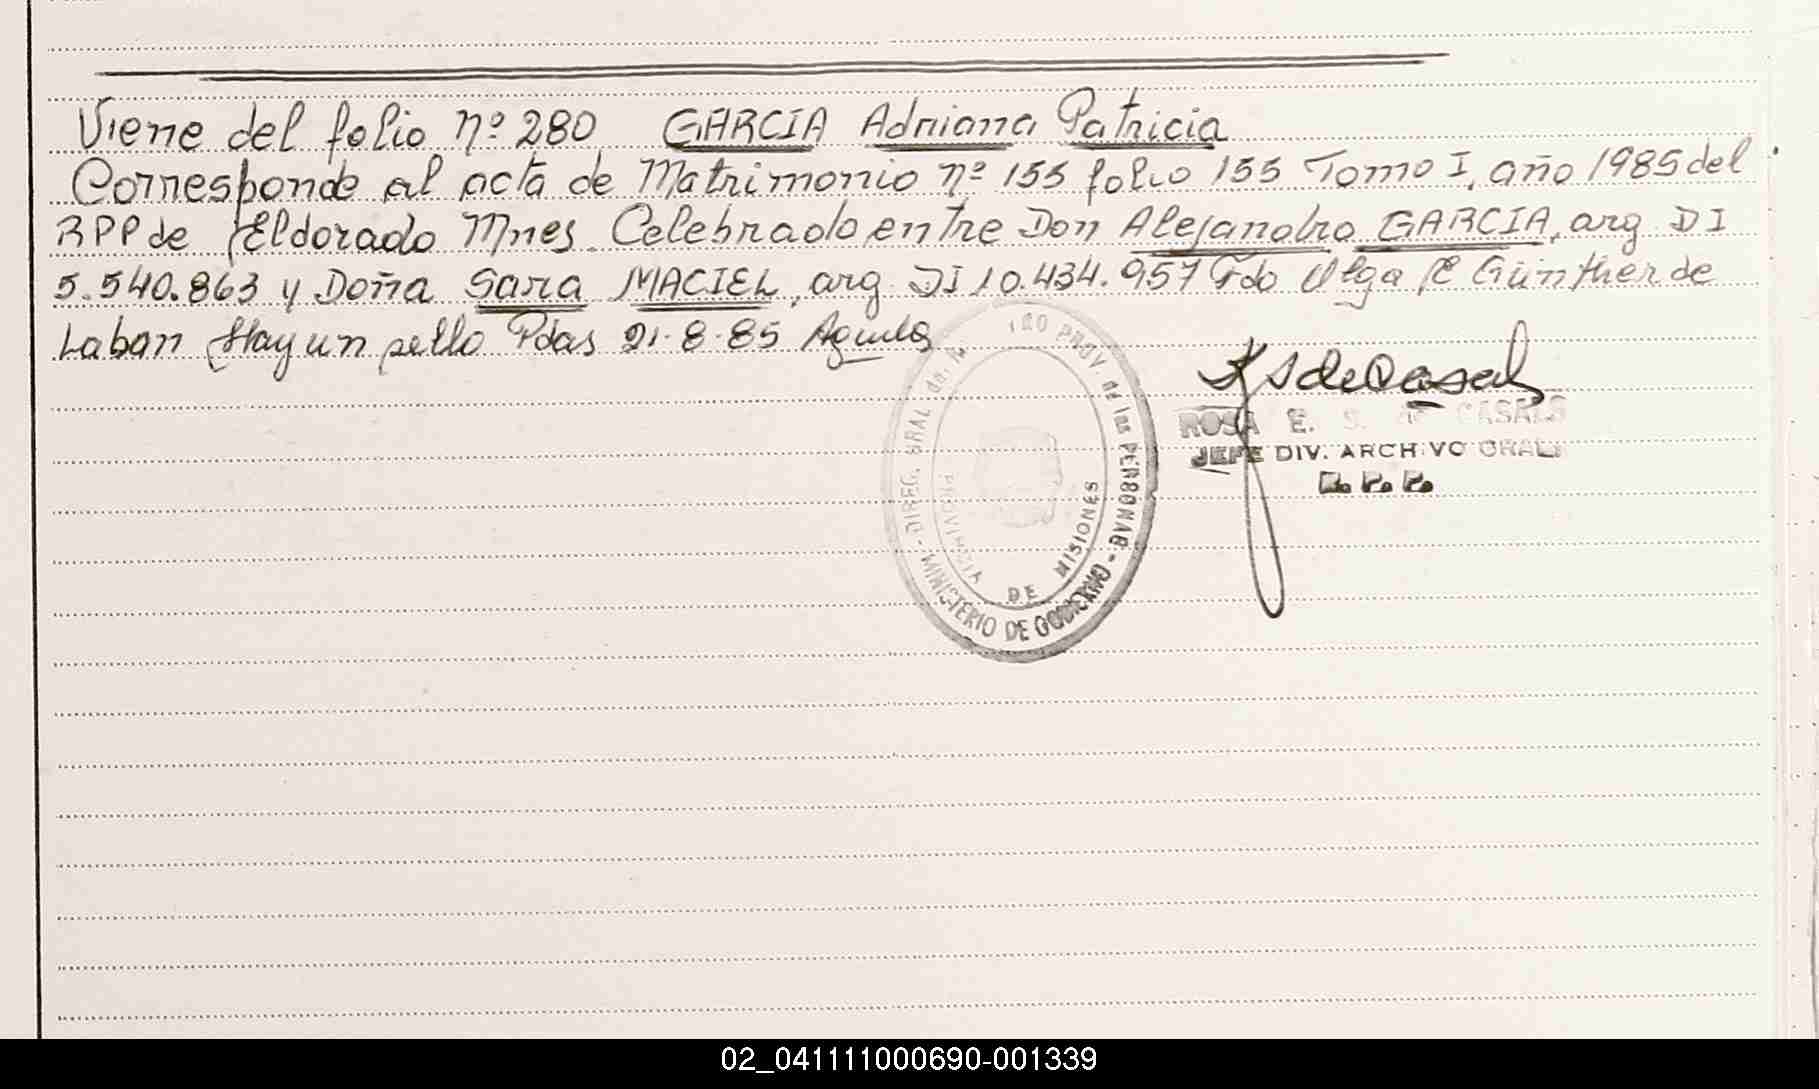 Viene del folio nº 280 GARCIA Adriana Patricia
Corresponde al acta de Matrimonio nº 155 folio 155 Tomo I, año 1985 del
RPP de Eldorado Mnes. Celebrado entre Don Alejandro GARCIA, arg. DI
5.540.863 y Doña Sara MACIEL, arg. DI 10.434.957 Fdo Olga E Günther de
Laban Hay un sello Pdas 21-8-85
DIREG. GRAL de PROV de las PERSONAS - MINISTERIO DE GOBIERNO
PROVINCIA DE MISIONES
ROSA E. S. de CASALS
JEFE DIV. ARCHIVO GRAL.
R. P. P.
02_041111000690-001339